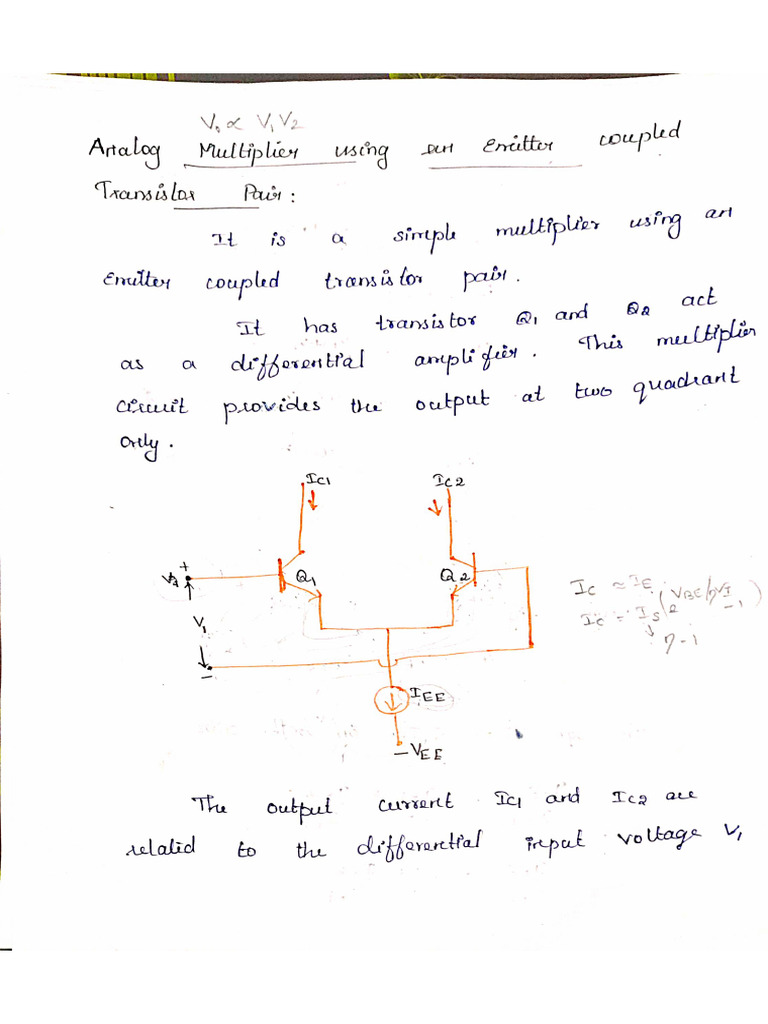 V₀ ∝ V₁V₂
Analog Multiplier using an Emitter coupled
Transistor Pair:
It is a simple multiplier using an
Emitter coupled transistor pair.
It has transistor Q1 and Q2 act
as a differential amplifier. This multiplier
circuit provides the output at two quadrant
only.
IC1 IC2
+
Q1 Q2
V1
−
IC ≃ IE
IEE
−VEE
The output current IC1 and IC2 are
related to the differential input voltage V1